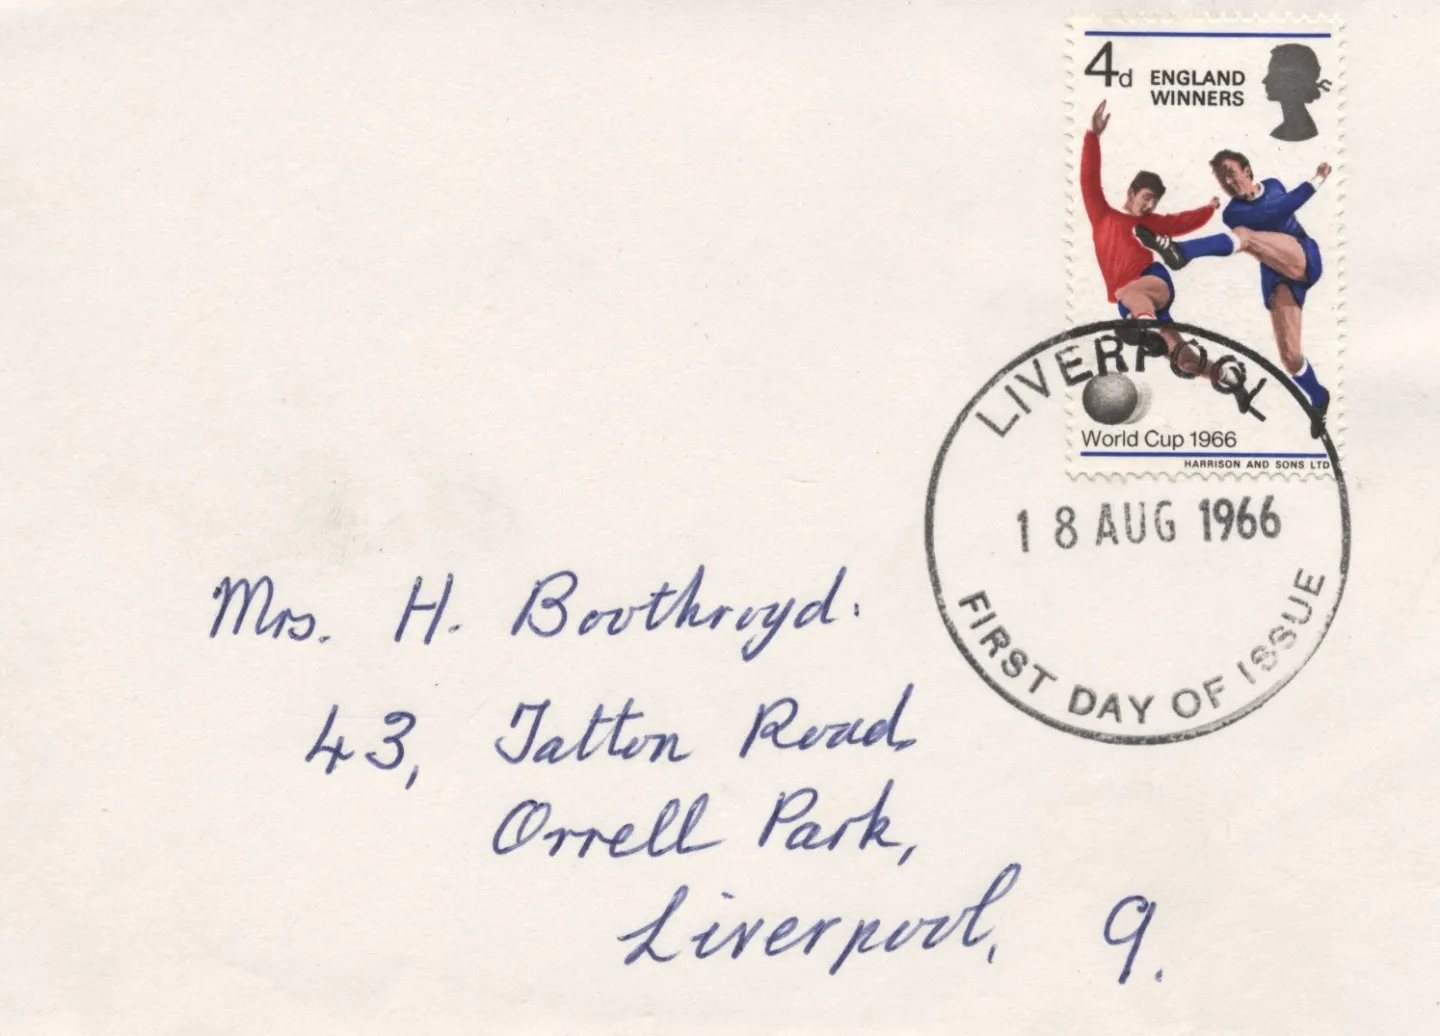 4d ENGLAND
WINNERS
World Cup 1966
HARRISON AND SONS LTD
LIVERPOOL
18 AUG 1966
FIRST DAY OF ISSUE
Mrs. H. Boothroyd.
43, Tatton Road,
Orrell Park,
Liverpool, 9.